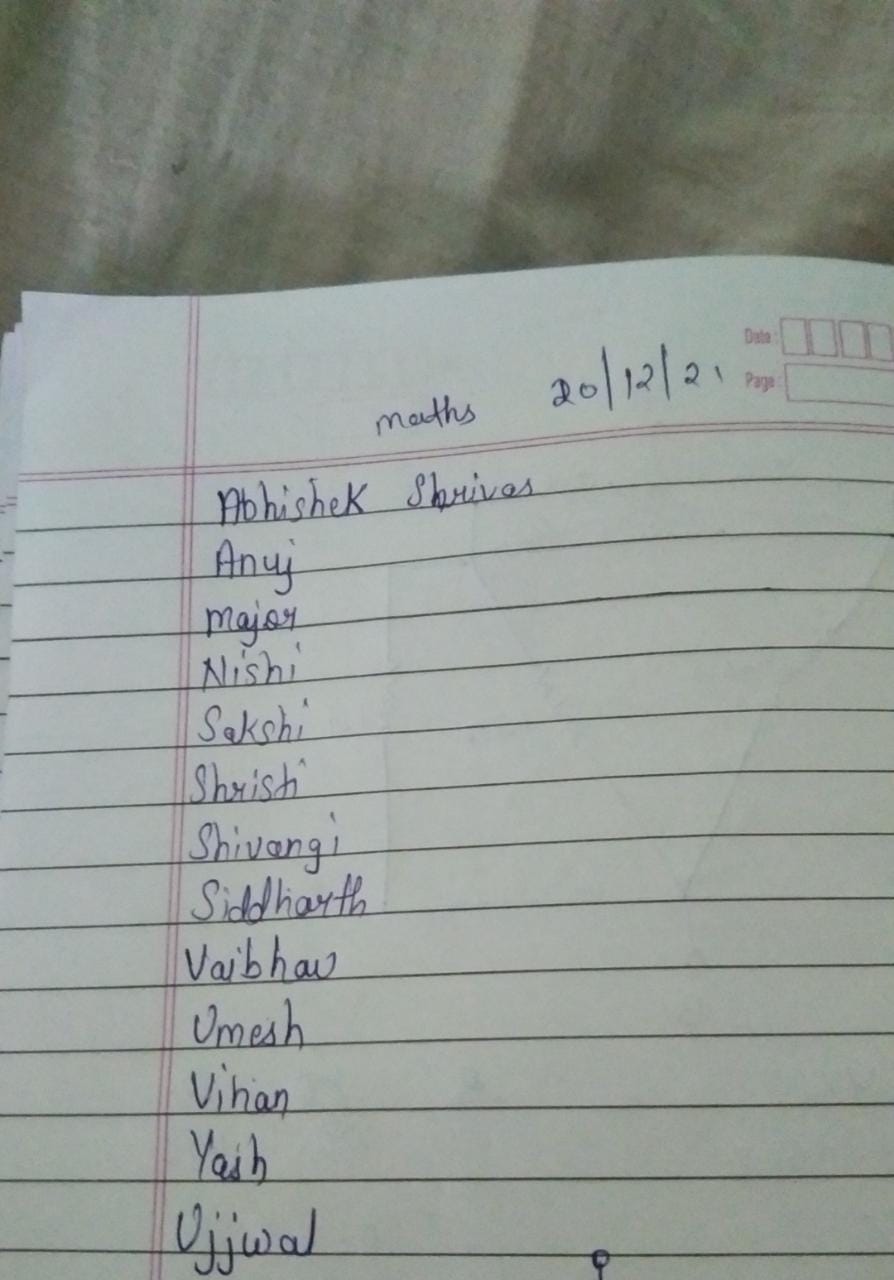 Date:
maths 20/12/21 Page:
Abhishek Shrivas
Anuj
Major
Nishi
Sakshi
Shristi
Shivangi
Siddharth
Vaibhav
Umesh
Vihan
Yash
Ujjwal